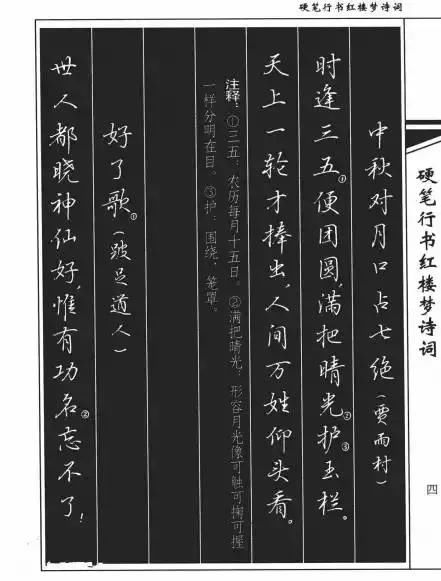 硬笔行书红楼梦诗词
硬笔行书红楼梦诗词
四
中秋对月口占七绝(贾雨村)
时逢三五①便团圆,满把晴光②护③玉栏。
天上一轮才捧出,人间万姓仰头看。
注释:①三五:农历每月十五日。②满把晴光:形容月光像可触可掬可握
一样分明在目。③护:围绕、笼罩。
好了歌①(跛足道人)
世人都晓神仙好,惟有功名②忘不了!